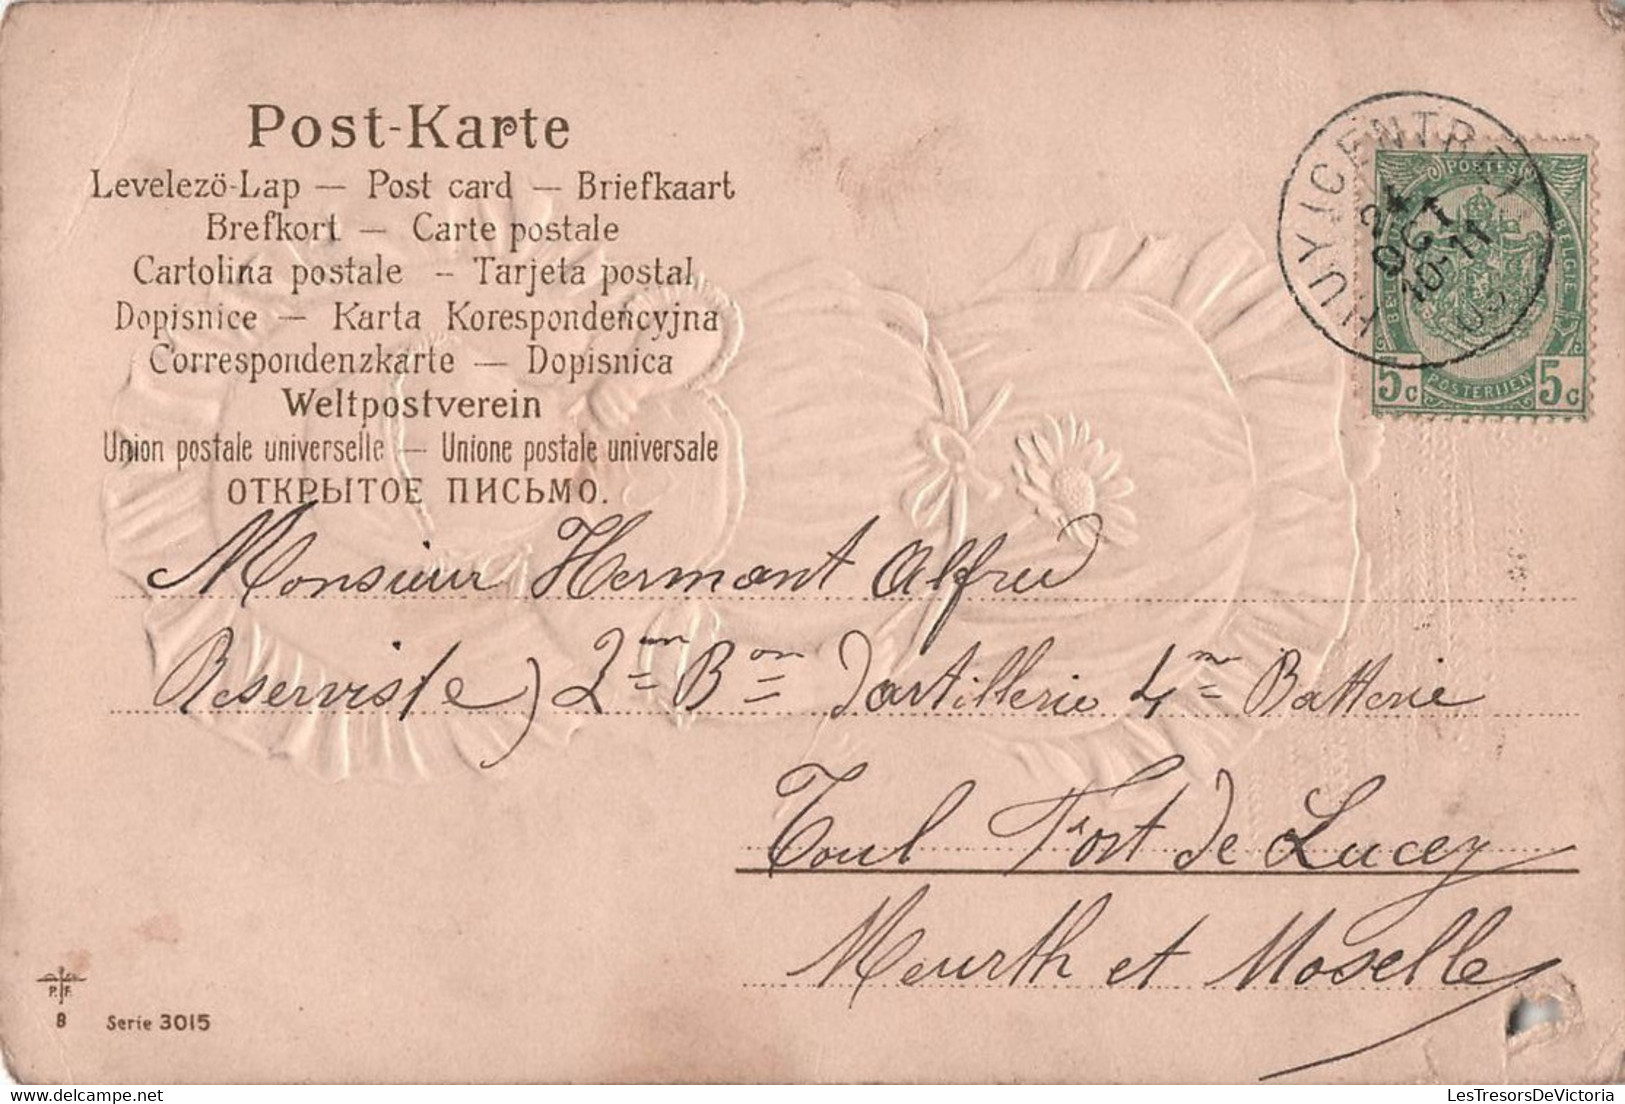 Post-Karte
Levelezö-Lap — Post card — Briefkaart
Brefkort — Carte postale
Cartolina postale – Tarjeta postal
Dopisnice — Karta Korespondencyjna
Correspondenzkarte — Dopisnica
Weltpostverein
Union postale universelle — Unione postale universale
ОТКРЫТОЕ ПИСЬМО.
HUY (CENTRE)
24
OCT
10-11
05
POSTES
BELGIQUE
BELGIE
5c POSTERIJEN 5c
Monsieur Hermant Alfred
Reserviste) 2em Bon Dartillerie 4me Batterie
Toul Fort de Lucey
Meurth et Moselle
P. F.
8 Serie 3015
LesTresorsDeVictoria